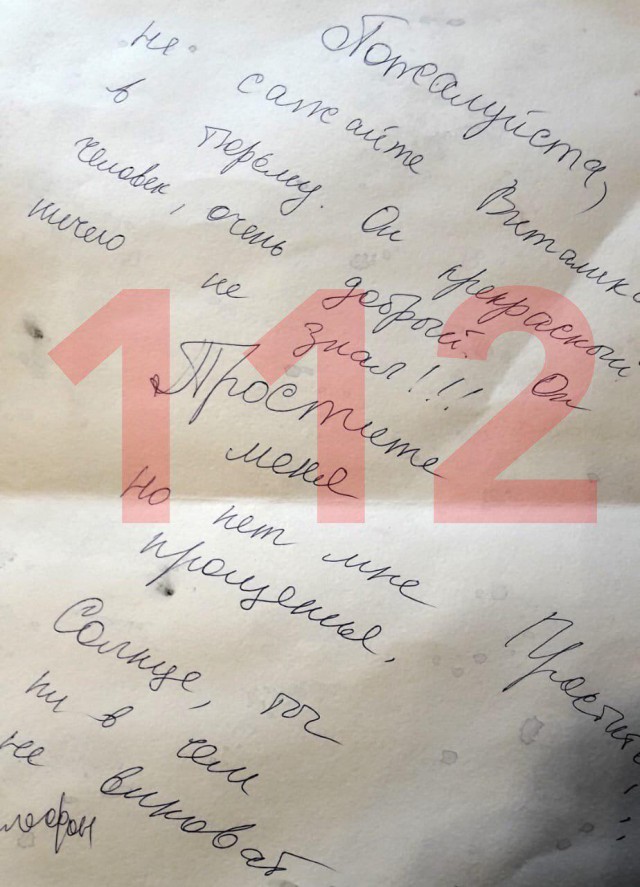 Пожалуйста,
не сажайте Виталика
в тюрьму. Он прекрасный
человек, очень добрый. Он
ничего не знал!!!
Простите
меня
но нет мне
прощенье, Простите
!!!
Солнце, ты
ни в чем
не виноват
112